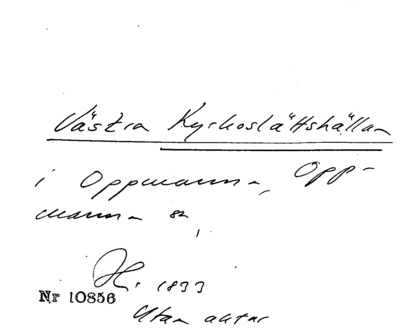 Västra Kyrkoslättshällan
i Oppmanna, Opp-
manna sn,
H. 1833
Nr 10856
Utan aktnr